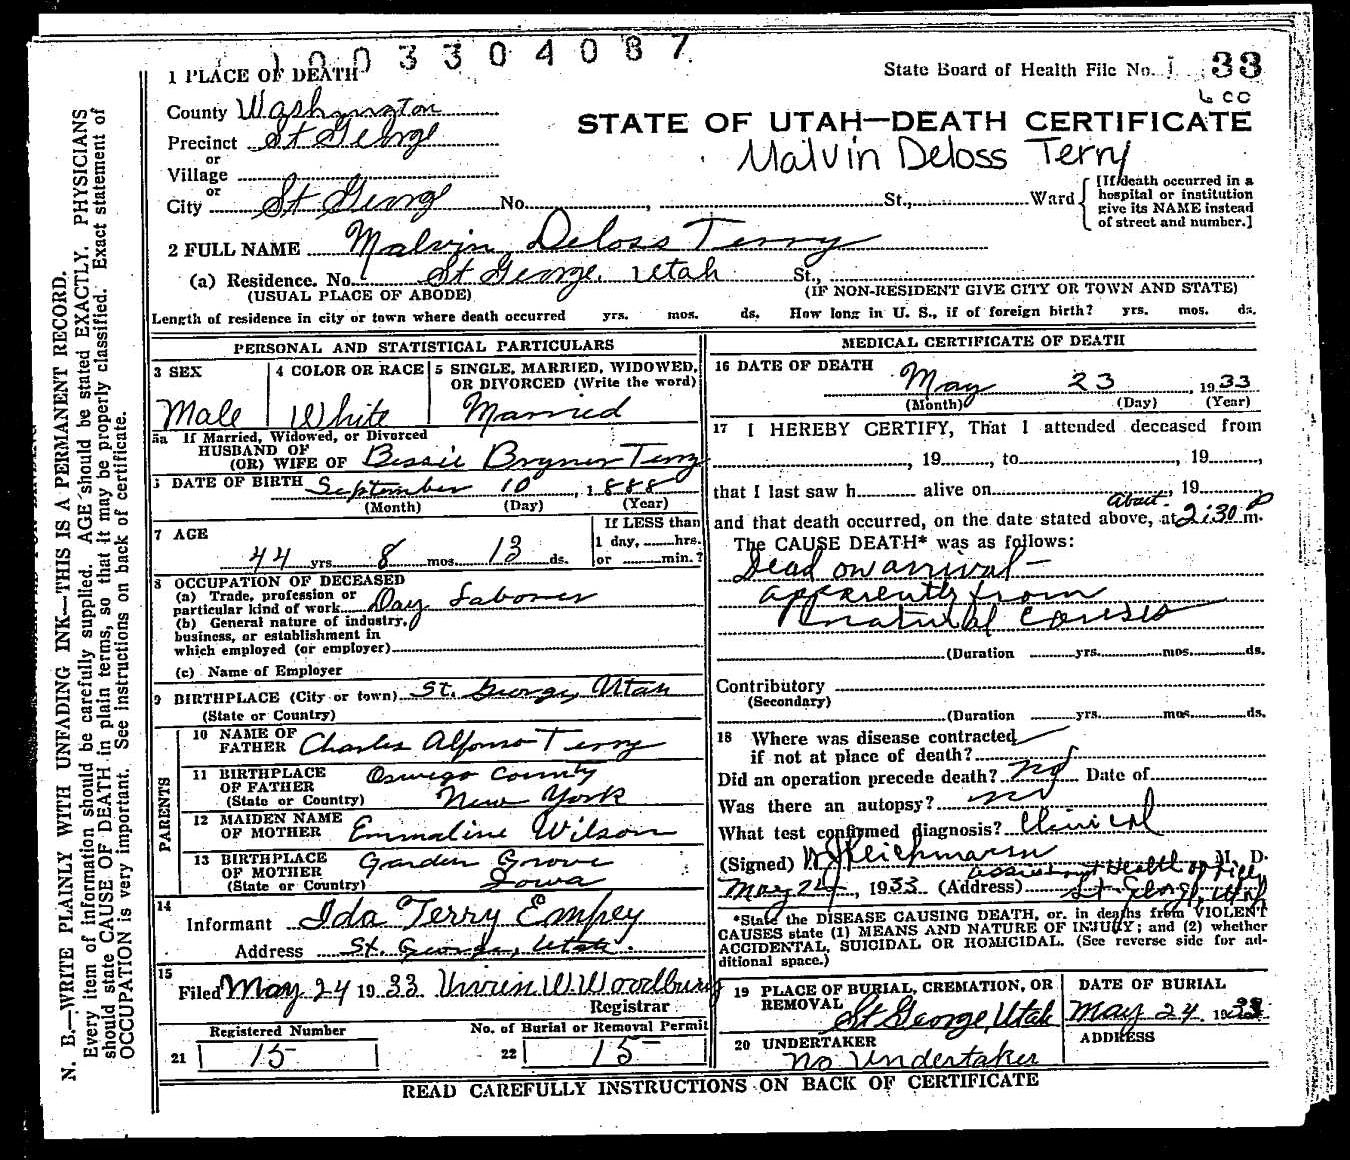 1003304087
1 PLACE OF DEATH
State Board of Health File No. 33
County Washington
600
STATE OF UTAH—DEATH CERTIFICATE
Precinct St George
Malvin Deloss Terry
or
Village
or
City St George No. , St., Ward
[If death occurred in a
hospital or institution
give its NAME instead
of street and number.]
2 FULL NAME Malvin Deloss Terry
(a) Residence. No. St George. Utah St.,
(USUAL PLACE OF ABODE) (IF NON-RESIDENT GIVE CITY OR TOWN AND STATE)
Length of residence in city or town where death occurred yrs. mos. ds. How long in U. S., if of foreign birth? yrs. mos. ds.
PERSONAL AND STATISTICAL PARTICULARS
3 SEX 4 COLOR OR RACE 5 SINGLE, MARRIED, WIDOWED,
OR DIVORCED (Write the word)
Male White Married
5a If Married, Widowed, or Divorced
HUSBAND OF
(OR) WIFE OF Bessie Bryner Terry
6 DATE OF BIRTH September 10, 1888
(Month) (Day) (Year)
7 AGE If LESS than
1 day, hrs.
44 yrs. 8 mos. 13 ds. or min.?
8 OCCUPATION OF DECEASED
(a) Trade, profession or
particular kind of work Day Laborer
(b) General nature of industry,
business, or establishment in
which employed (or employer)
(c) Name of Employer
9 BIRTHPLACE (City or town) St. George, Utah
(State or Country)
PARENTS
10 NAME OF
FATHER Charles Alfonso Terry
11 BIRTHPLACE
OF FATHER Oswego County
(State or Country) New York
12 MAIDEN NAME
OF MOTHER Emmaline Wilson
13 BIRTHPLACE
OF MOTHER Garden Grove
(State or Country) Iowa
14
Informant Ida Terry Empey
Address St. George, Utah.
15
Filed May 24 1933. Vivien W Woodbury
Registrar
Registered Number No. of Burial or Removal Permit
21 15 22 15
MEDICAL CERTIFICATE OF DEATH
16 DATE OF DEATH
May 23, 1933
(Month) (Day) (Year)
17 I HEREBY CERTIFY, That I attended deceased from
, 19 , to , 19 ,
that I last saw h alive on , 19
About
and that death occurred, on the date stated above, at 2:30 P m.
The CAUSE DEATH* was as follows:
Dead on arrival—
apparently from
natural causes
(Duration yrs. mos. ds.
Contributory
(Secondary)
(Duration yrs. mos. ds.
18 Where was disease contracted
if not at place of death?
Did an operation precede death? no Date of
Was there an autopsy? no
What test confirmed diagnosis? Clinical
(Signed) M. D.
assistant Health officer
May 24, 1933 (Address) St. George, Utah
*State the DISEASE CAUSING DEATH, or, in deaths from VIOLENT
CAUSES state (1) MEANS AND NATURE OF INJURY; and (2) whether
ACCIDENTAL, SUICIDAL OR HOMICIDAL. (See reverse side for ad-
ditional space.)
19 PLACE OF BURIAL, CREMATION, OR
REMOVAL St George, Utah
DATE OF BURIAL
May 24 1933
20 UNDERTAKER
No Undertaker
ADDRESS
READ CAREFULLY INSTRUCTIONS ON BACK OF CERTIFICATE
N. B.—WRITE PLAINLY WITH UNFADING INK—THIS IS A PERMANENT RECORD.
Every item of information should be carefully supplied. AGE should be stated EXACTLY. PHYSICIANS
should state CAUSE OF DEATH in plain terms, so that it may be properly classified. Exact statement of
OCCUPATION is very important. See instructions on back of certificate.